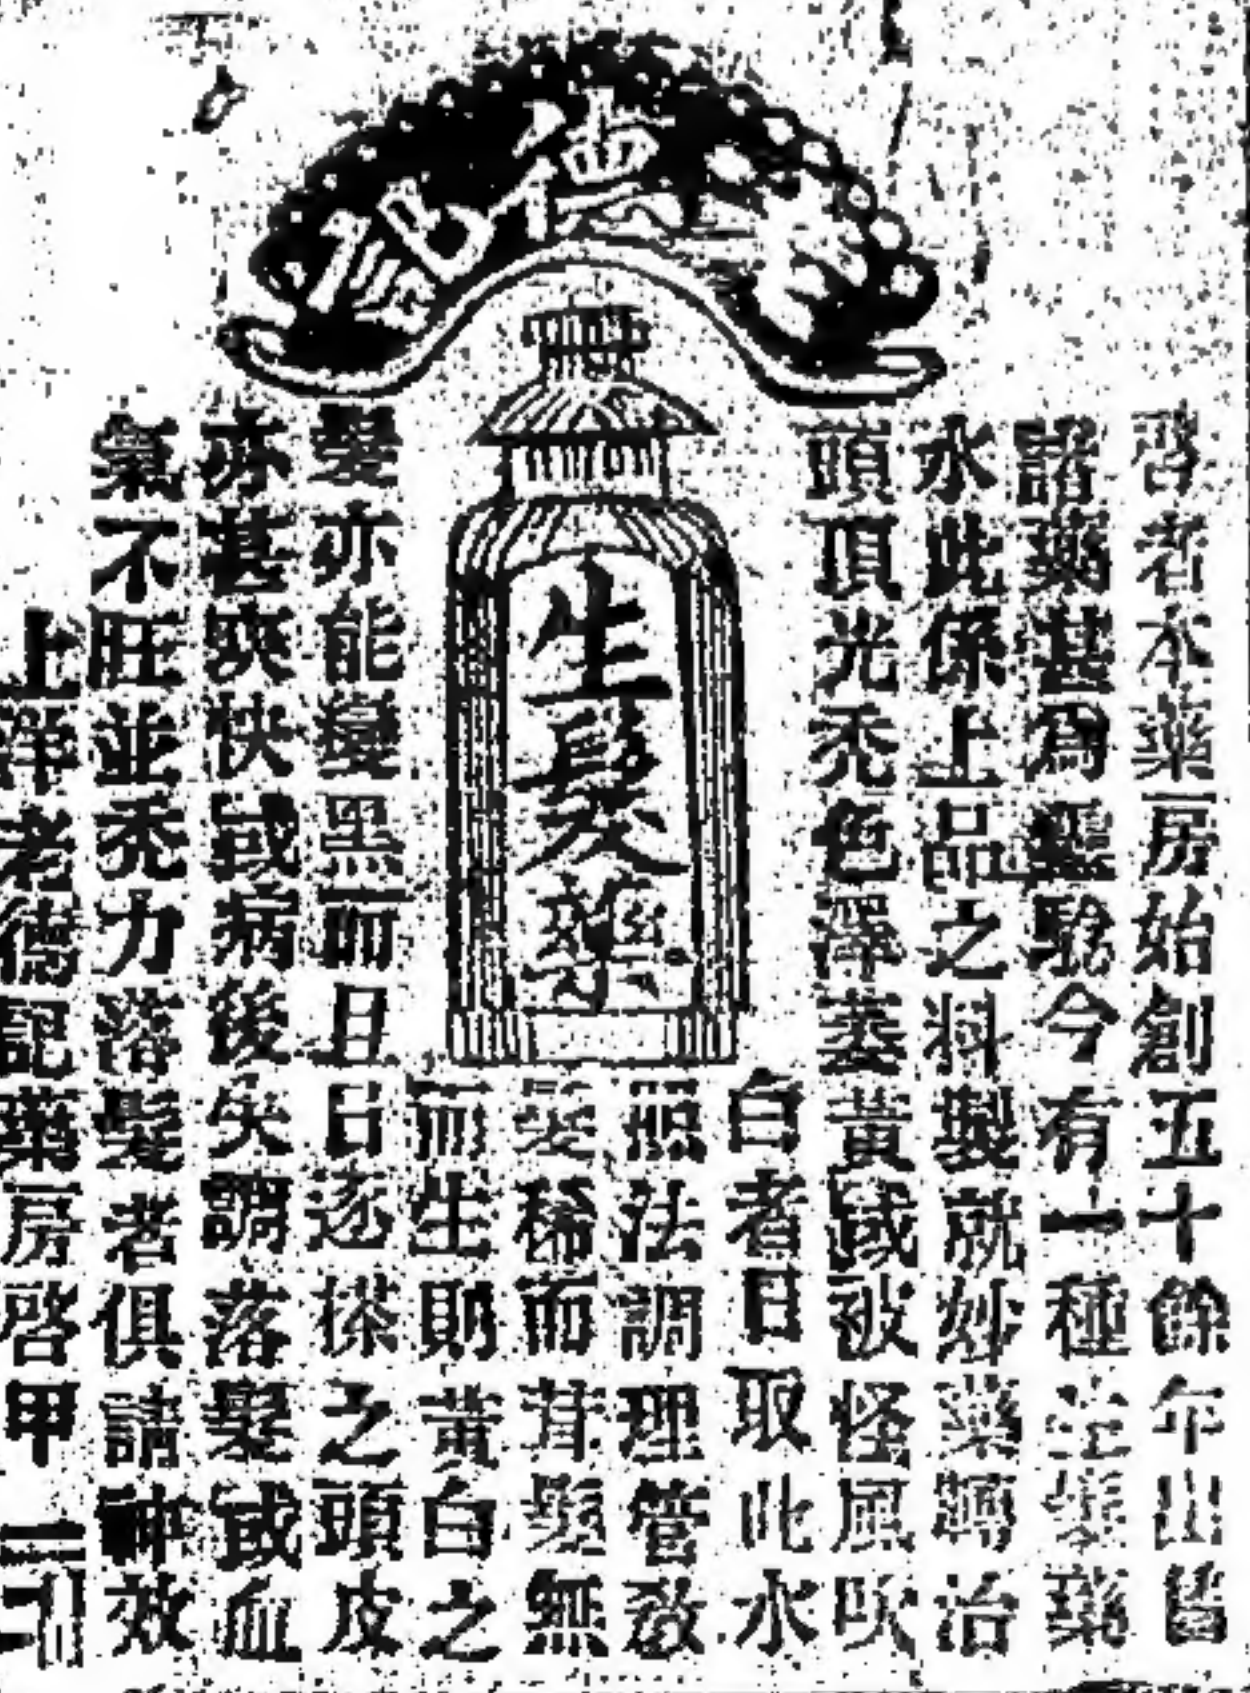 老德記
生髮藥
啓者本藥房始創五十餘年出售
諸藥甚爲靈驗今有一種生髮藥
水此係上品之料製就妙藥專治
頭頂光禿色澤萎黃或被怪風吹
白者日取此水
照法調理管教
髮稀而茸髮無
而生則黃白之
髮亦能變黑而且日逐搽之頭皮
亦甚爽快或病後失調落髮或血
氣不旺並禿力落髮者俱請神效
上洋老德記藥房啓 甲